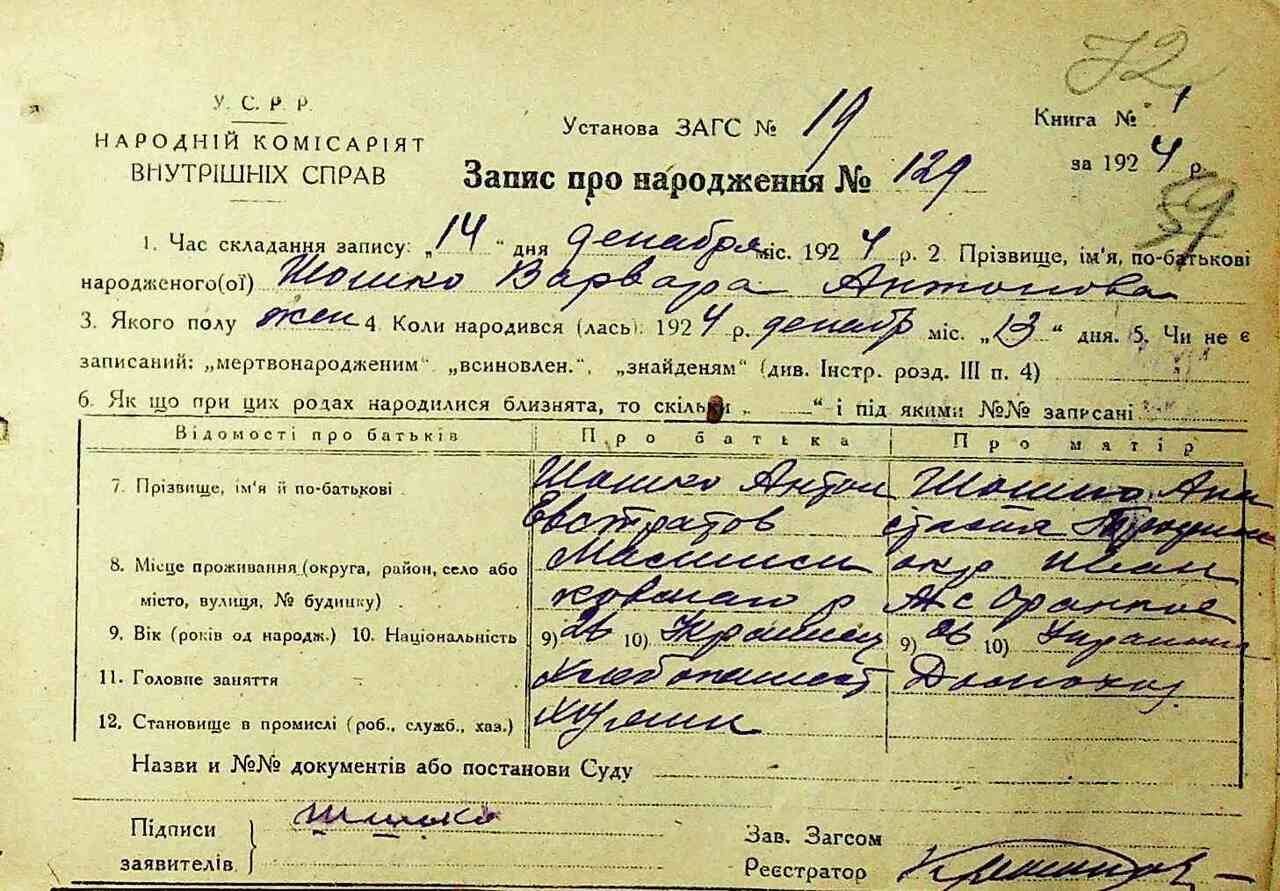 72
У. С. Р. Р.
НАРОДНІЙ КОМІСАРІЯТ
ВНУТРІШНІХ СПРАВ
Установа ЗАГС № 19
Книга № 1
за 1924 р.
Запис про народження № 129
59
1. Час складання запису: „14“ дня декабря міс. 1924 р. 2 Прізвище, ім'я, по-батькові
народженого(ої) Шошко Варвара Антонова
3. Якого полу жен 4. Коли народився (лась). 1924 р. декабр міс. „13“ дня. 5. Чи не є
записаний: „мертвонародженим“ „всиновлен.“, „знайденям“ (див. Інстр. розд. III п. 4)
6. Як що при цих родах народилися близнята, то скільки „ “ і під якими №№ записані
Відомості про батьків Про батька Про матір
7. Прізвище, ім'я й по-батькові Шошко Антон Шошко Ана
Евстратов стасия
8. Місце проживання (округа, район, село або окр
місто, вулиця, № будинку) р
9. Вік (років од народж.) 10. Національність 9) 26 10) 9) 26 10)
11. Головне заняття
12. Становище в промислі (роб., служб., хаз.)
Назви и №№ документів або постанови Суду
Підписи
заявителів
Шошко
Зав. Загсом
Реєстратор